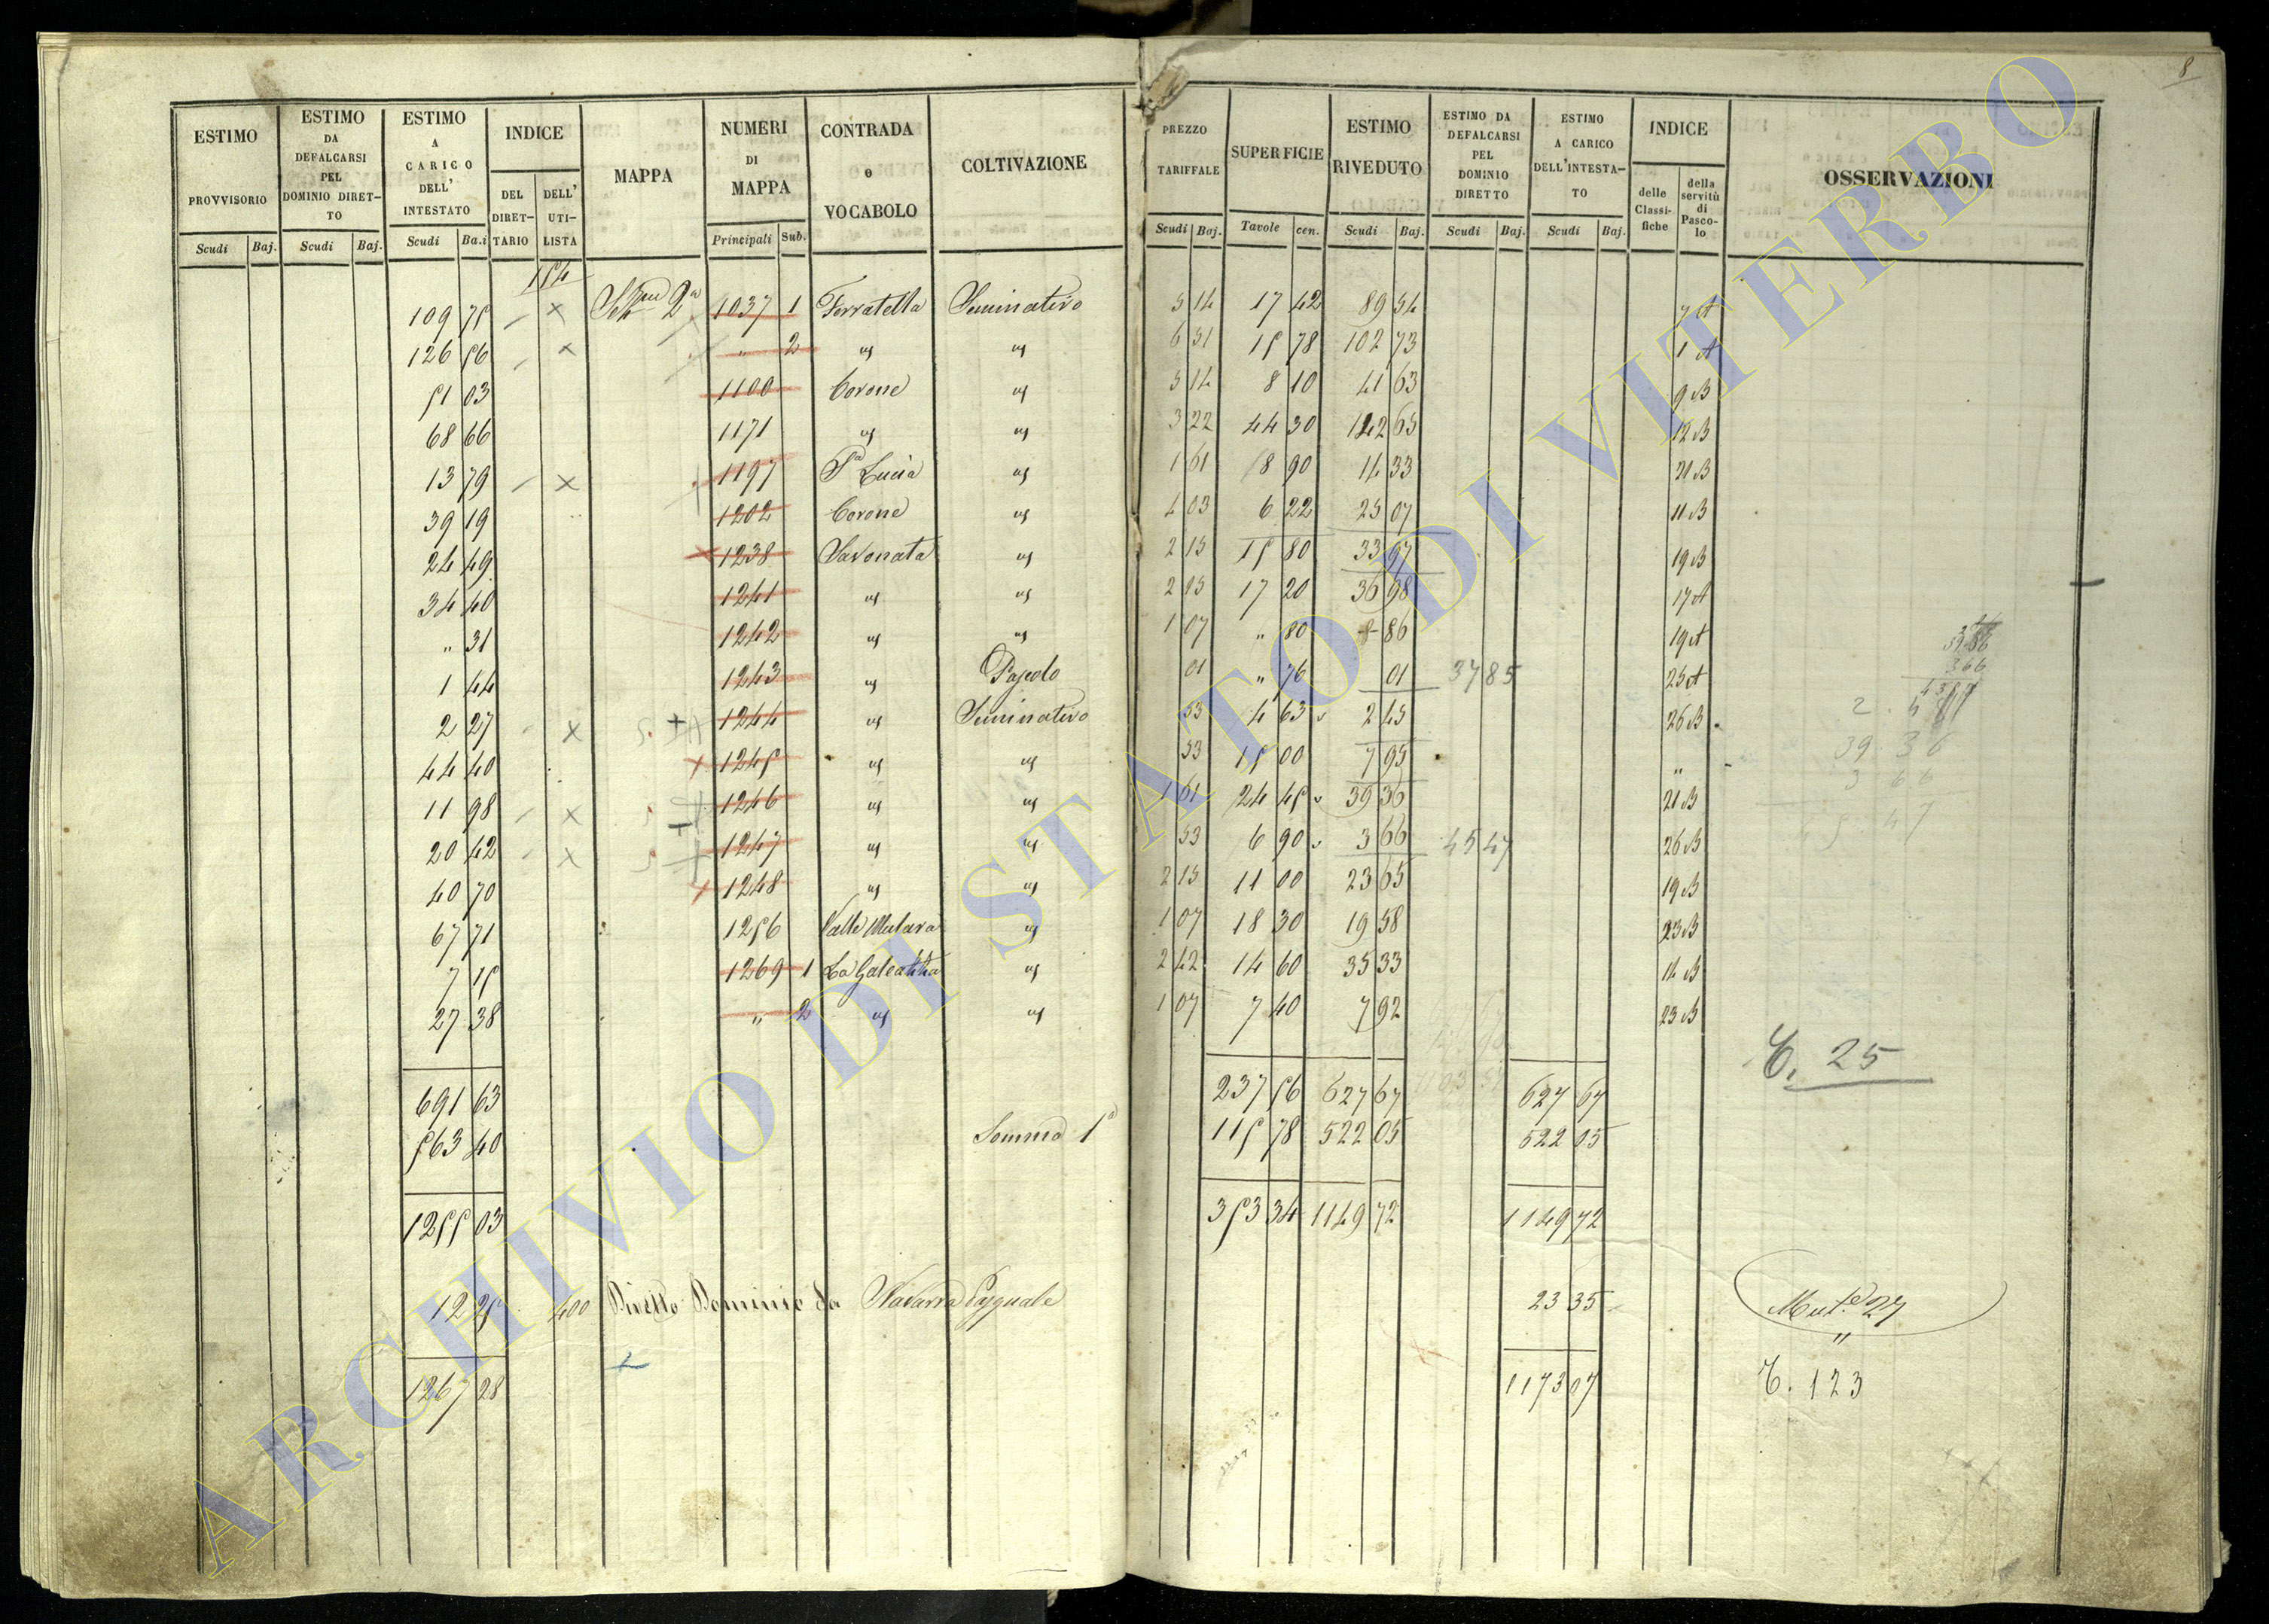 8
ESTIMO PROVVISORIO | ESTIMO DA DEFALCARSI PEL DOMINIO DIRETTO | ESTIMO A CARICO DELL' INTESTATO | INDICE | MAPPA | NUMERI DI MAPPA | CONTRADA o VOCABOLO | COLTIVAZIONE | PREZZO TARIFFALE | SUPERFICIE | ESTIMO RIVEDUTO | ESTIMO DA DEFALCARSI PEL DOMINIO DIRETTO | ESTIMO A CARICO DELL'INTESTATO | INDICE | OSSERVAZIONI
DEL DIRETTARIO | DELL' UTILISTA | delle Classifiche | della servitù di Pascolo
Scudi | Baj. | Scudi | Baj. | Scudi | Ba.i | Principali | Sub. | Scudi | Baj. | Tavole | cen. | Scudi | Baj. | Scudi | Baj. | Scudi | Baj.
154
109 75 | 2a | 1037 | 1 | Ferratella | Seminativo | 5 14 | 17 42 | 89 54 | 7 A
126 56 | " | 2 | " | " | 6 51 | 15 78 | 102 73 | 1 A
51 03 | 1100 | Corone | " | 5 14 | 8 10 | 41 63 | 9 B
68 66 | 1171 | " | " | 3 22 | 44 30 | 142 65 | 12 B
13 79 | 1197 | Sa Lucia | " | 1 61 | 8 90 | 14 33 | 21 B
39 19 | 1202 | Corone | " | 4 03 | 6 22 | 25 07 | 11 B
24 49 | 1238 | Savonata | " | 2 15 | 15 80 | 33 97 | 19 B
34 40 | 1241 | " | " | 2 15 | 17 20 | 36 98 | 17 A
" 31 | 1242 | " | " | 1 07 | " 80 | 86 | 19 A
1 44 | 1243 | " | Pascolo | 01 | " 76 | 01 | 37 85 | 25 A
2 27 | 1244 | " | Seminativo | 53 | 4 63 | 2 45 | 26 B
44 40 | 1245 | " | " | 53 | 15 00 | 7 95 | "
11 98 | 1246 | " | " | 1 61 | 24 45 | 39 36 | 21 B
20 42 | 1247 | " | " | 53 | 6 90 | 3 66 | 45 47 | 26 B
40 70 | 1248 | " | " | 2 15 | 11 00 | 23 65 | 19 B
67 71 | 1256 | Valle Mulara | " | 1 07 | 18 30 | 19 58 | 23 B
7 15 | 1269 | 1 | " | 2 42 | 14 60 | 35 33 | 14 B
27 38 | " | 2 | " | " | 1 07 | 7 40 | 7 92 | 23 B
39 36
3 66
C. 25
691 63 | 237 56 | 627 67 | 627 67
563 40 | Somma 1a | 115 78 | 522 05 | 522 05
1255 03 | 353 34 | 1149 72 | 1149 72
12 25 | 400 | Diretto Dominio da Navarra Pasquale | 23 35 | Mut.e 27
"
1267 28 | 1173 07 | C. 123
ARCHIVIO DI STATO DI VITERBO